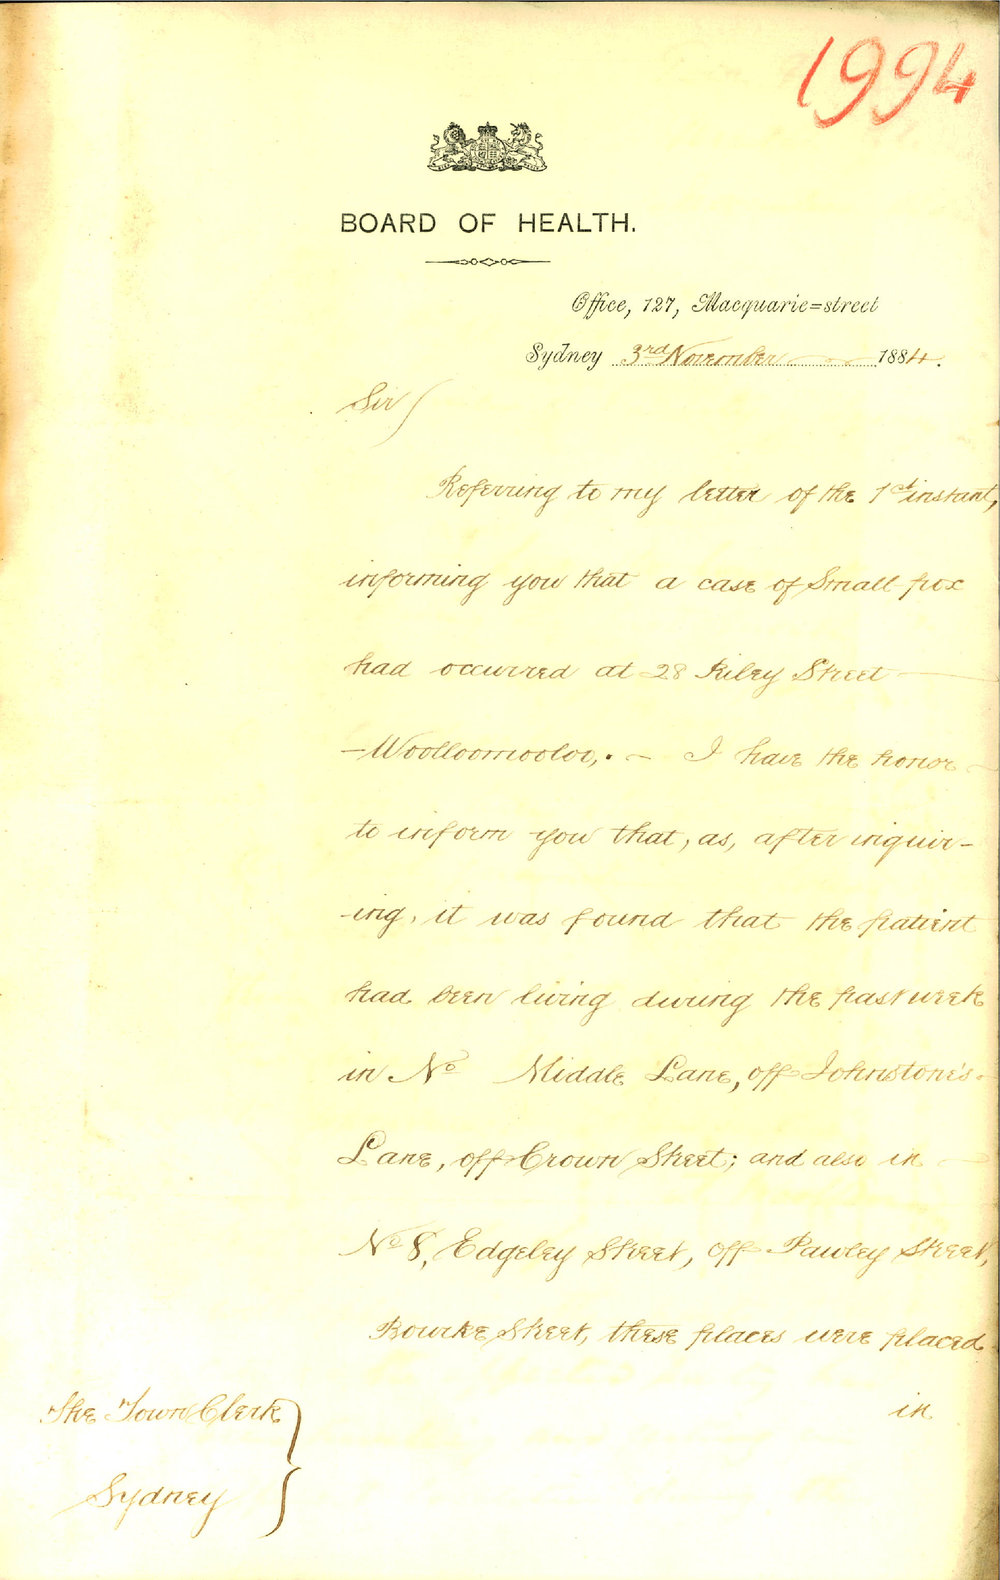 1994
BOARD OF HEALTH.
Office, 127, Macquarie=street
Sydney 3rd November 1884.
Sir
Referring to my letter of the 1st instant,
informing you that a case of Small pox
had occurred at 28 Riley Street
- Woolloomooloo,. - I have the honor
to inform you that, as, after inquir-
-ing, it was found that the patient
had been living during the past week
in No Middle Lane, off Johnstone's
Lane, off Crown Street; and also in
No 8, Edgeley Street, off Pawley Street,
Bourke Street, these places were placed
in
The Town Clerk
Sydney